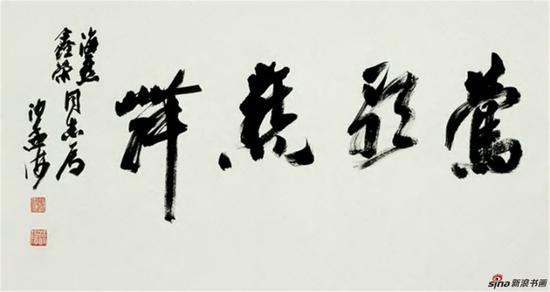 鶯歌燕舞
海燕
鑫荣同志属
沙孟海
sina新浪书画